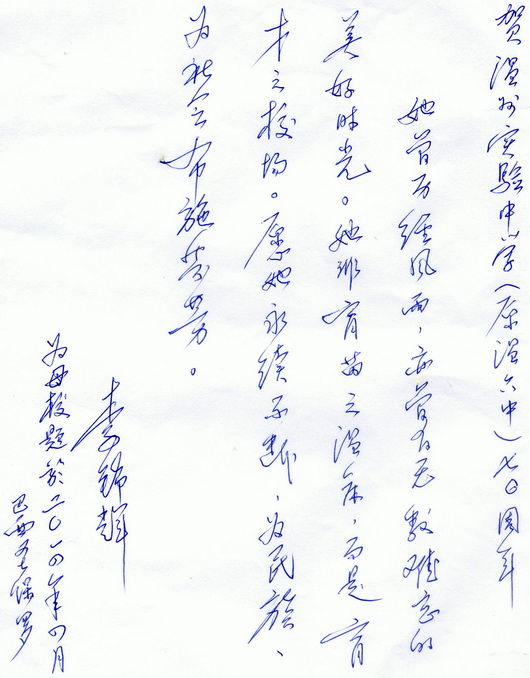 贺温州实验中学（原温六中）七〇周年
她曾历经风雨，亦曾有无数难忘的
美好时光。她非育苗之温床，而是育
才之校场。愿她永续不断，为民族、
为社会布施芬芳。
李锦辉
为母校题於二〇一四年四月
巴西圣保罗